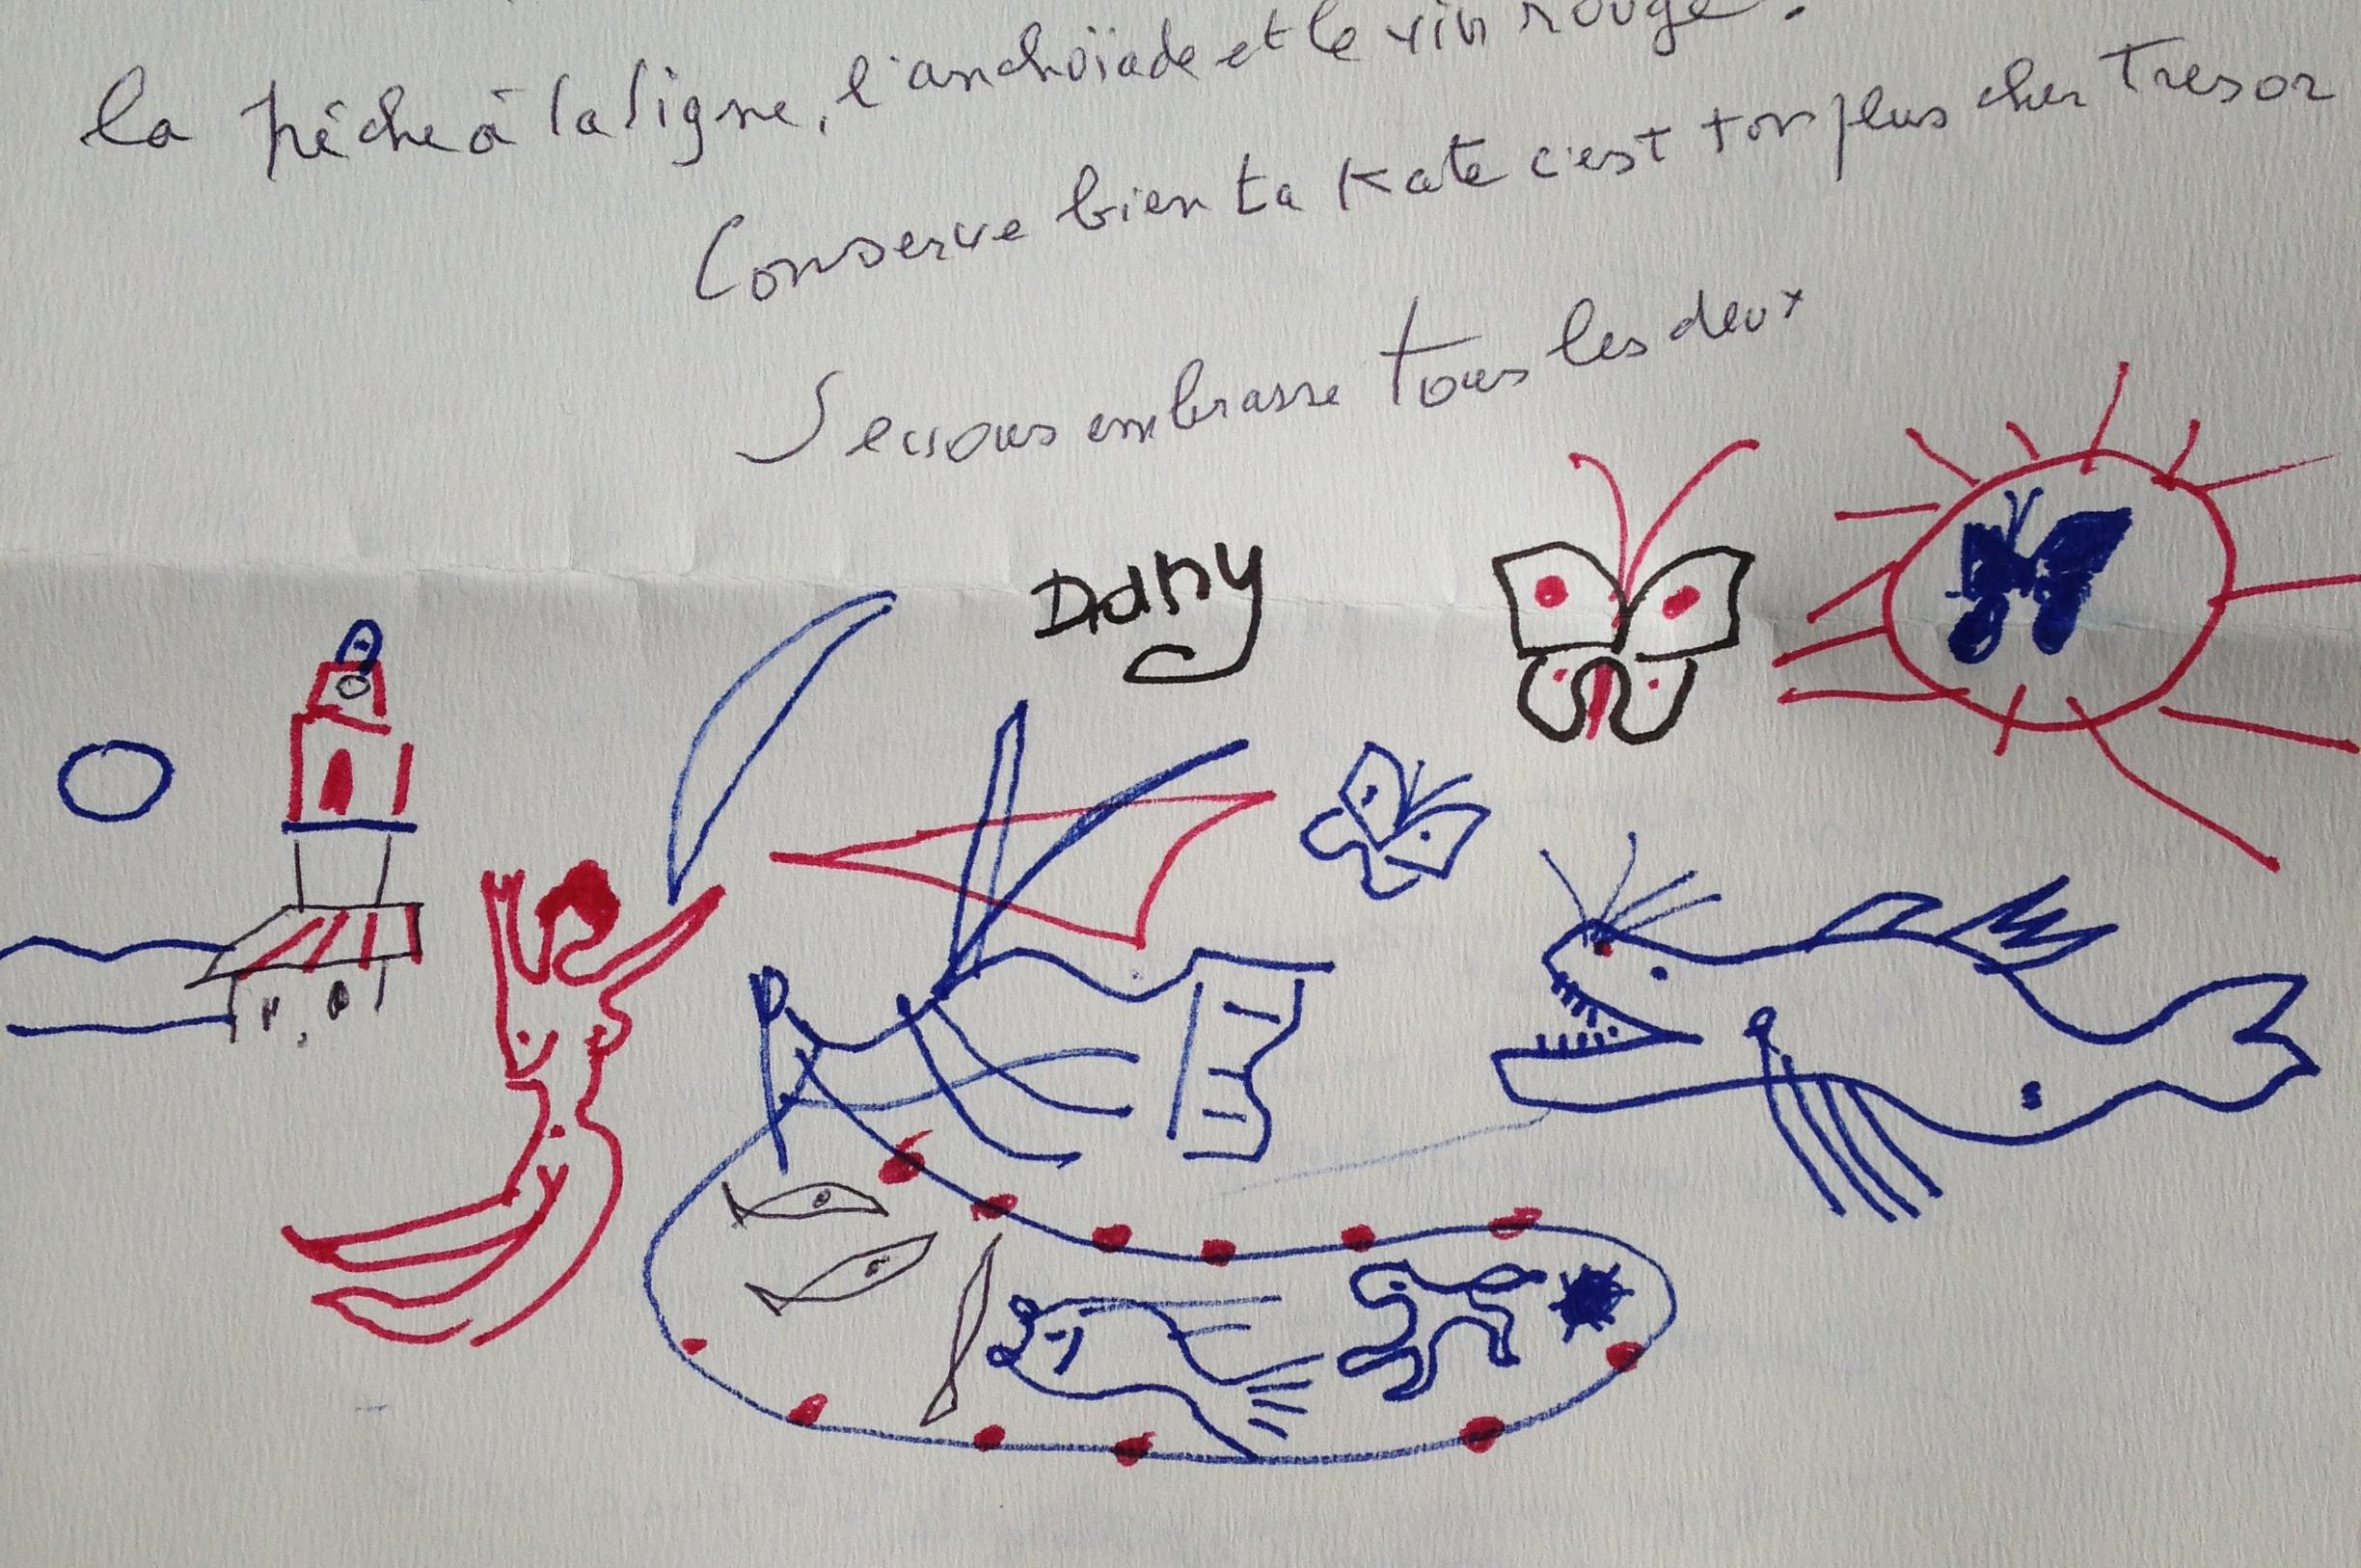 la pêche à la ligne, l'anchoïade et le vin rouge.
Conserve bien ta Kate c'est ton plus cher Tresor
Je vous embrasse Tous les deux
Dany